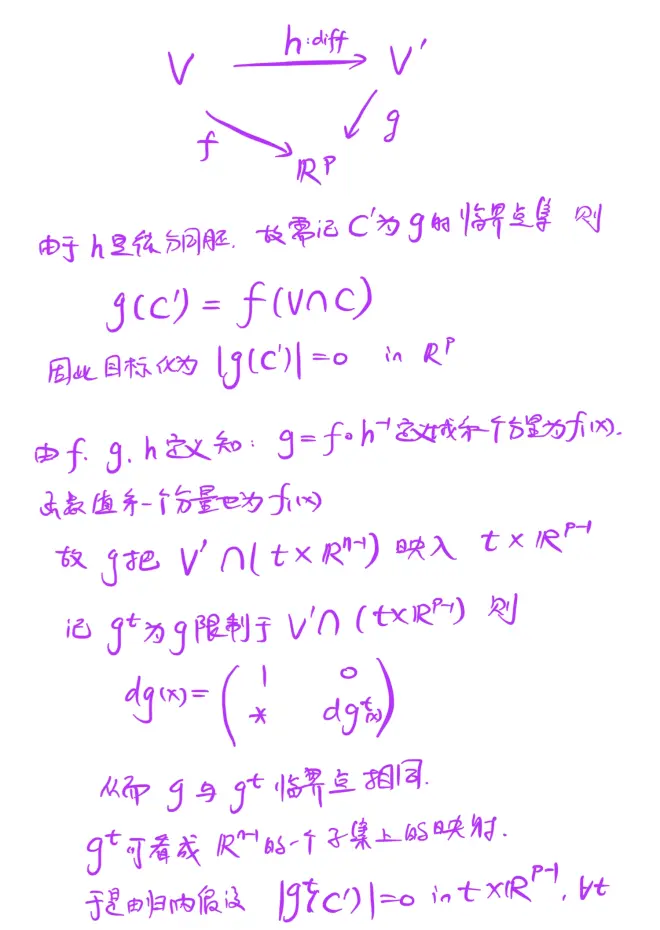 h:diff
V V′
f g
ℝᵖ
由于h是微分同胚. 故需记C′为g的临界点集 则
g(C′) = f(V∩C)
因此目标化为 |g(C′)|=0 in ℝᵖ
由f. g. h定义知: g=f∘h⁻¹定义域第一个分量为f₁(x).
函数值第一个分量也为f₁(x)
故 g把 V′∩(t×ℝⁿ⁻¹) 映入 t×ℝᵖ⁻¹
记 gᵗ为g限制于 V′∩(t×ℝᵖ⁻¹) 则
dg(x)= ( 1 0
* dgᵗ(x) )
从而 g与gᵗ临界点相同.
gᵗ可看成 ℝⁿ⁻¹的一个子集上的映射.
于是由归纳假设 |gᵗ(C′)|=0 in t×ℝᵖ⁻¹, ∀t